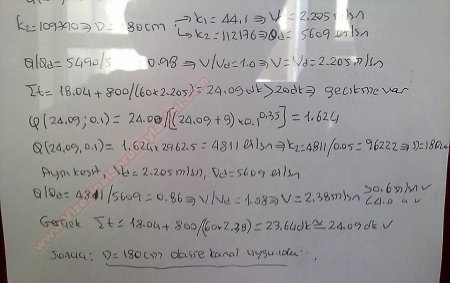 k₂=109790 ⇒ D= 180cm → k₁= 44.1 ⇒ Vd = 2.205 m/sn
→ k₂=112176 ⇒ Qd = 5609 lt/sn
= 0.98 ⇒ V/Vd=1.0 ⇒ V=Vd=2.205 m/sn
Σt = 18.04 + 800/(60x2.205) = 24.09 dk > 20dk ⇒ gecikme var
φ(24.09; 0.1) = /[(24.09 + 9) x 0.1^0.35] = 1.624
Q(24.09, 0.1) = 1.624 x 2962.5 = 4811 lt/sn ⇒ k₂= 4811/0.05 = 96222 ⇒ D=180cm
Aynı kesit Vd = 2.205 m/sn, Qd=5609 lt/sn
Q/Qd= 4811/5609 = 0.86 ⇒ V/Vd= 1.08 ⇒ V= 2.38 m/sn >0.6 m/sn √
Gerçek Σt= 18.04 + 800/(60x2.38) = 23.64dk ≅ 24.09 dk √
Sonuç: D= 180cm daire kanal